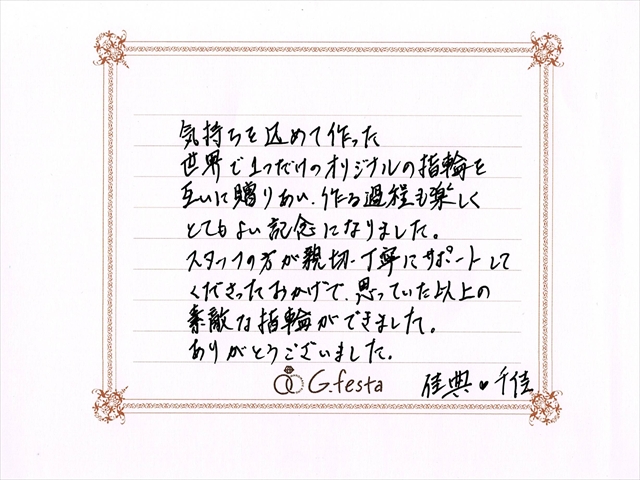 気持ちを込めて作った
世界で1つだけのオリジナルの指輪を
互いに贈りあい、作る過程も楽しく
とてもよい記念になりました。
スタッフの方が親切、丁寧にサポートして
くださったおかげで、思っていた以上の
素敵な指輪ができました。
ありがとうございました。
G.festa
佳典♥千佳